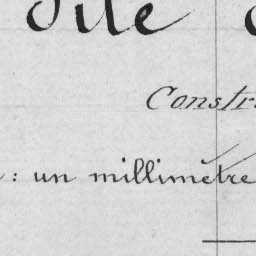 dite
Constr
: un millimètre